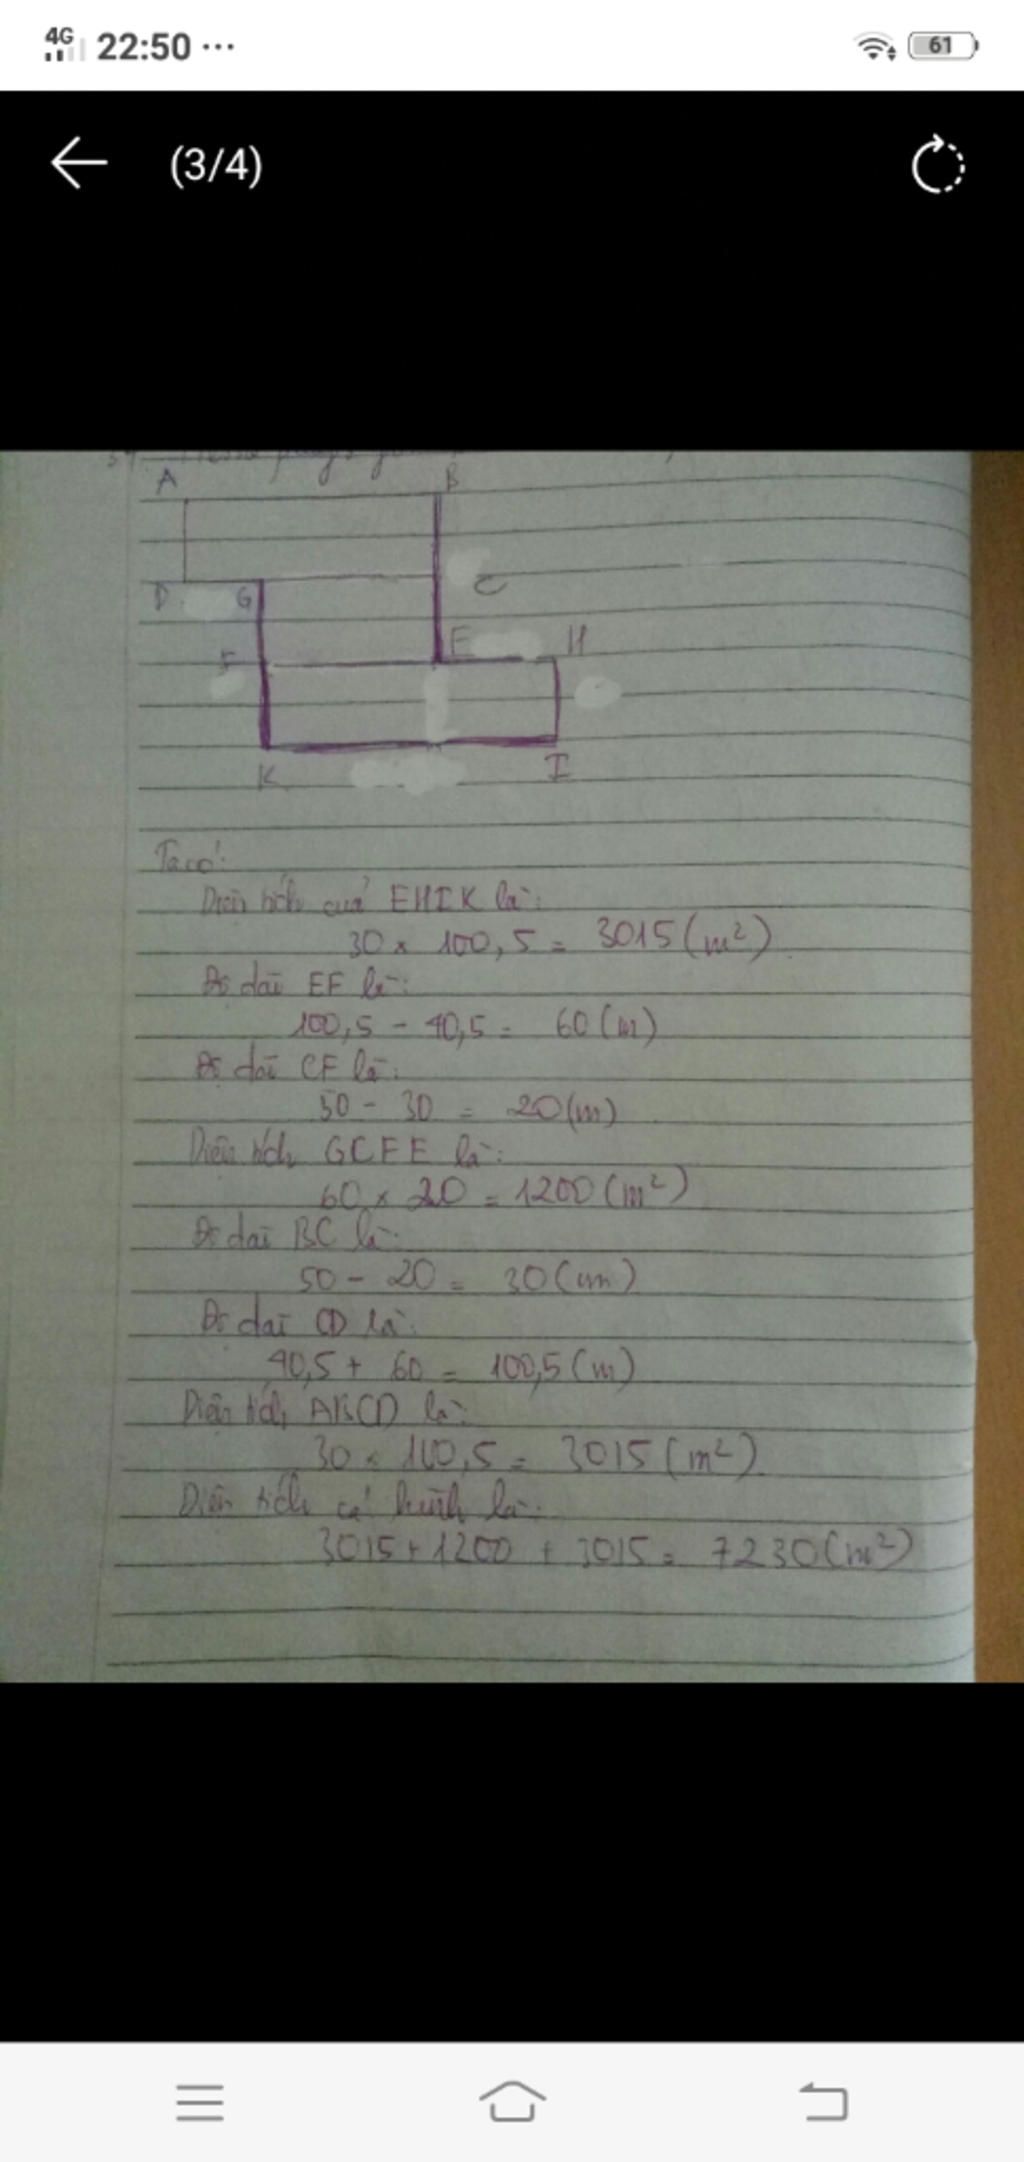 4G 22:50 ...
61
(3/4)
A B
D G C
F E H
K I
Ta có:
Diện tích của EHIK là:
30 x 100,5 = 3015 (m²)
Độ dài EF là:
100,5 - 40,5 = 60 (m)
Độ dài CF là:
50 - 30 = 20 (m)
Diện tích GCFE là:
60 x 20 = 1200 (m²)
Độ dài BC là:
50 - 20 = 30 (cm)
Độ dài CD là:
40,5 + 60 = 100,5 (m)
Diện tích ABCD là:
30 x 100,5 = 3015 (m²)
Diện tích cả hình là:
3015 + 1200 + 3015 = 7230 (m²)